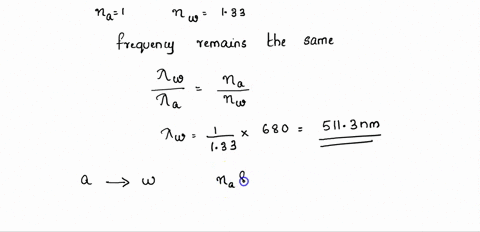 n_a = 1 n_w = 1.33
frequency remains the same
λ_w / λ_a = n_a / n_w
λ_w = 1 / 1.33 × 680 = 511.3 nm
a → w n_a